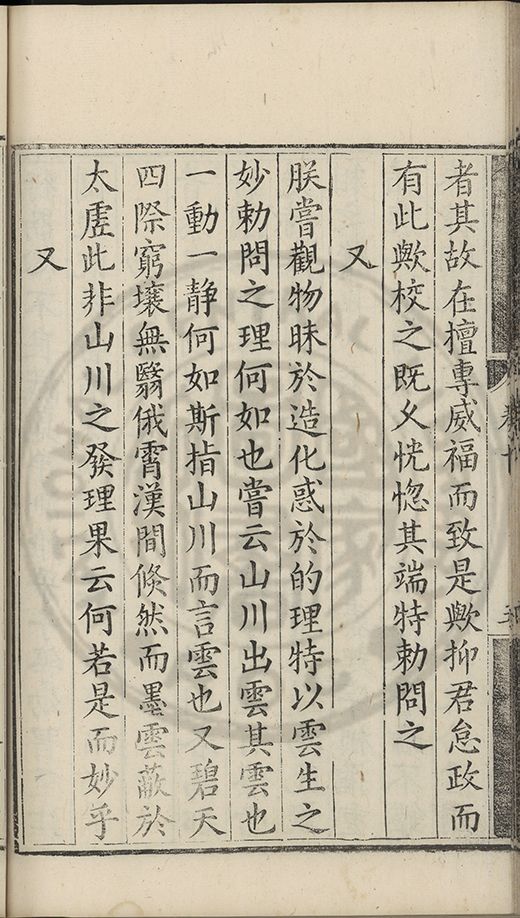 者其故在擅專威福而致是歟抑君怠政而
有此歟校之既久恍惚其端特勅問之
又
朕嘗觀物昧於造化惑於的理特以雲生之
妙勅問之理何如也嘗云山川出雲其雲也
一動一静何如斯指山川而言雲也又碧天
四際窮壤無翳俄霄漢間倏然而墨雲蔽於
太虛此非山川之發理果云何若是而妙乎
又